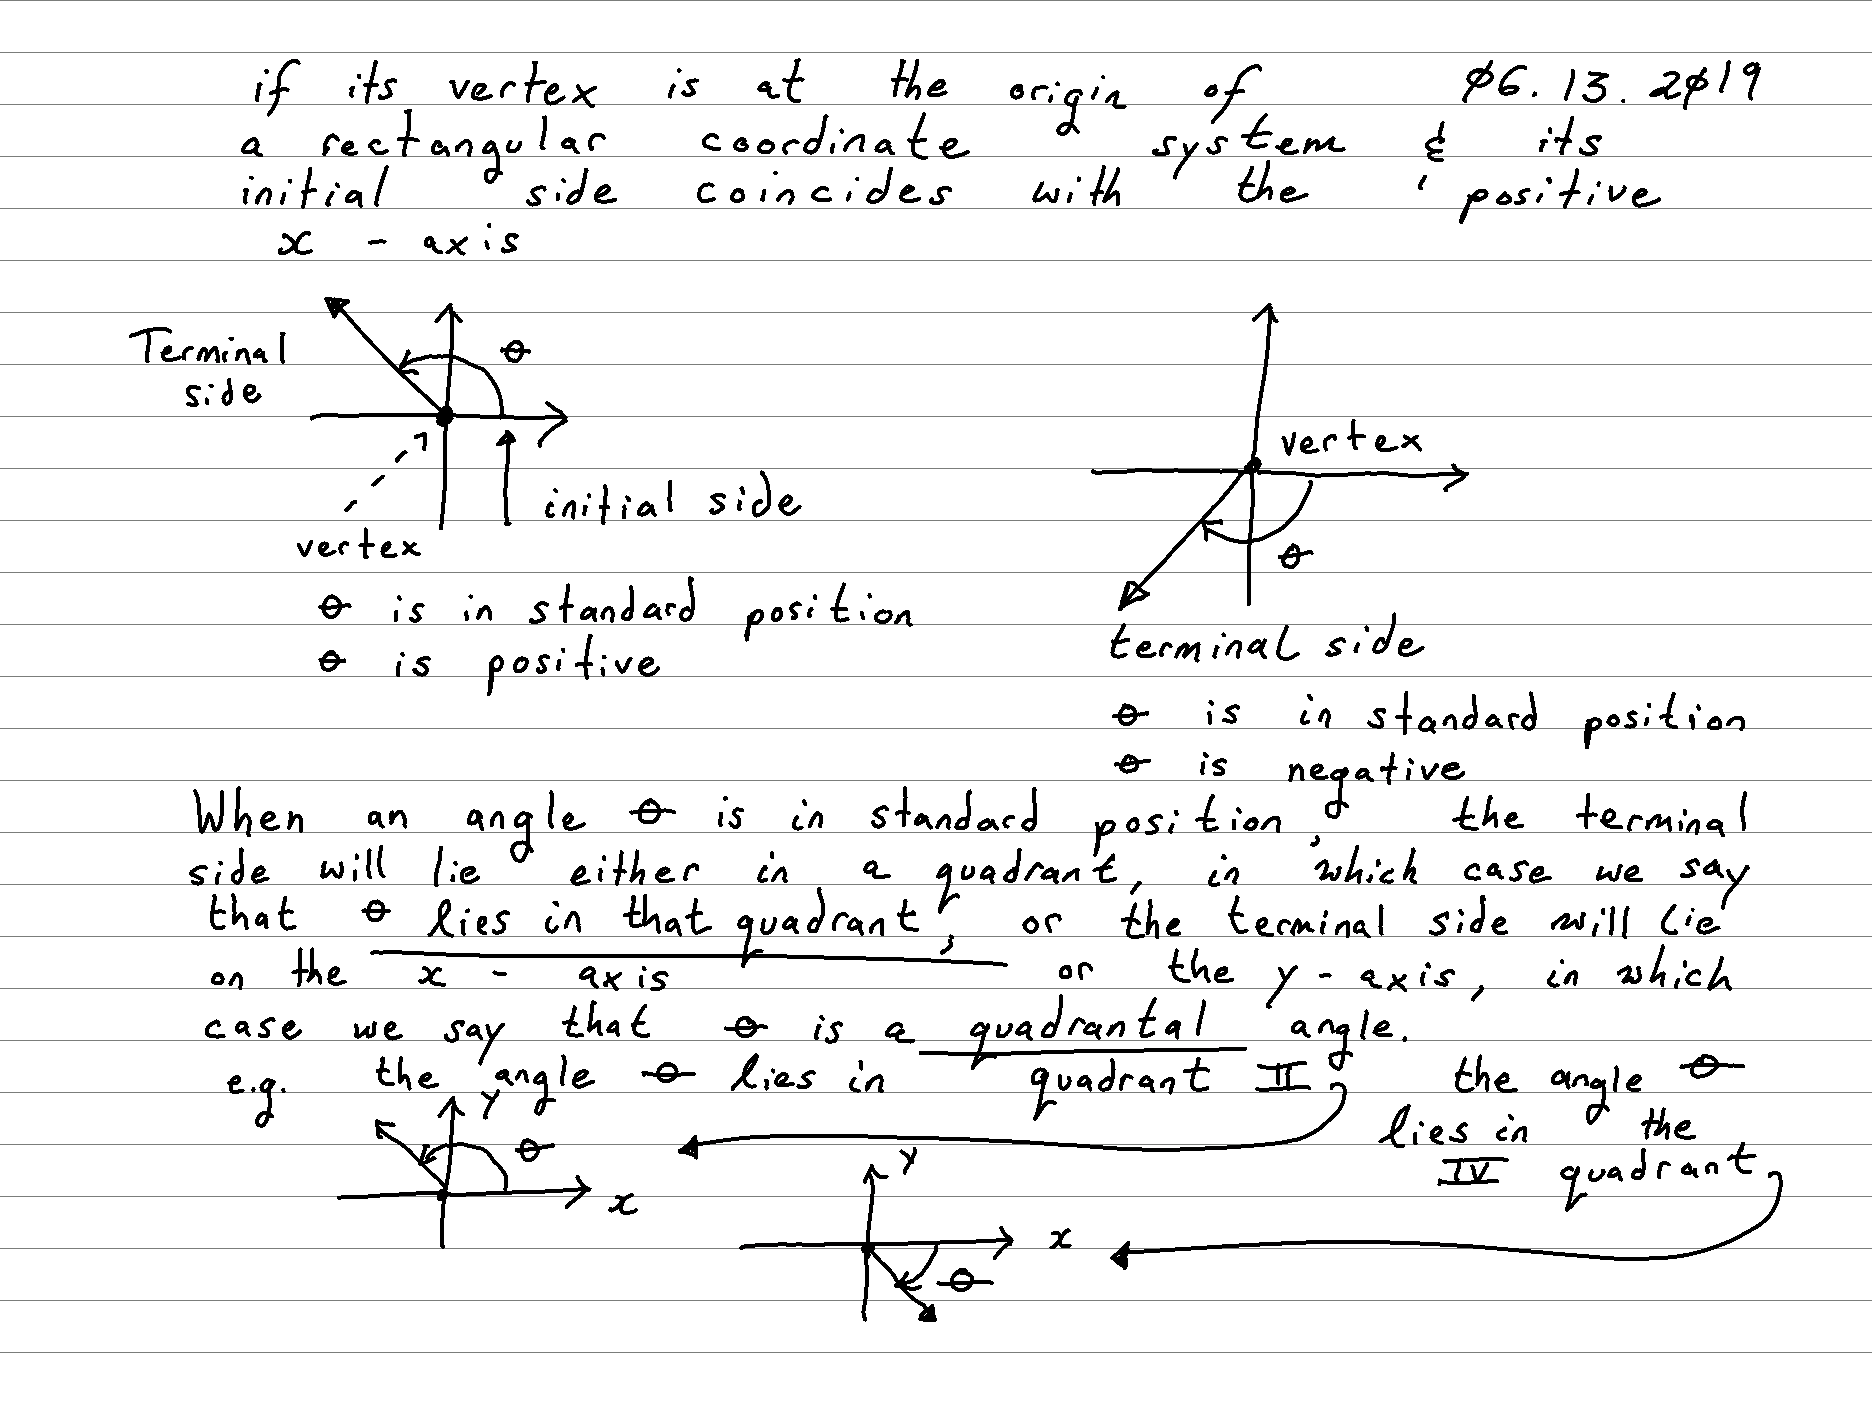 if its vertex is at the origin of 06.13.2019
a rectangular coordinate system & its
initial side coincides with the positive
x - axis
Terminal
side
θ
initial side
vertex
θ is in standard position
θ is positive
vertex
θ
terminal side
θ is in standard position
θ is negative
When an angle θ is in standard position, the terminal
side will lie either in a quadrant, in which case we say
that θ lies in that quadrant, or the terminal side will lie
on the x - axis or the y - axis, in which
case we say that θ is a quadrantal angle.
e.g. the angle θ lies in quadrant II the angle θ
lies in the
IV quadrant
y
θ
x
y
x
θ